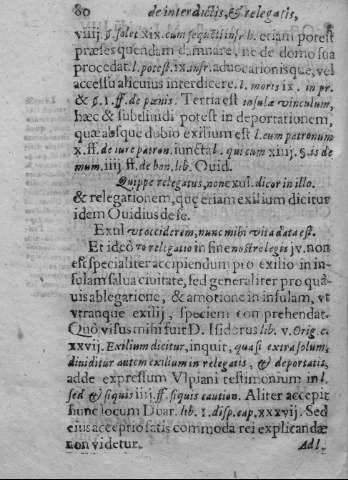 80 de interdictis, & relegatis,
viiij. §. solet xix. cum sequēti insr. b. etiam potest
præses quendam damnare, ne de domo sua
procedat. l. potest. ix. infr. aduocationisque, vel
accessu alicuius interdicere. l. moris ix. in pr.
& §. 1. ff. de pœnis. Tertia est insulæ vinculum,
hæc & subdiuidi potest in deportationem,
quæ absque dubio exilium est l. cum patronum
x. ff. de iure patron. iuncta l. qui cum xiiij. §. is de
mum. iiij. ff. de bon. lib. Ouid.
Quippe relegatus, non exul. dicor in illo.
& relegationem, quę etiam exilium dicitur
idem Ouidius de se.
Exul vt occiderem, nunc mihi vita data est.
Et ideò τὸ relegatio in fine nostrę legis jv. non
est specialiter accipiendum pro exilio in in-
sulam salua ciuitate, sed generaliter pro qua-
uis ablegatione, & amotione in insulam, vt
vtranque exilij, speciem comprehendat.
Quò visus mihi fuit D. Isidorus lib. v. Orig. c.
xxvij. Exilium dicitur, inquit, quasi extra solum,
diuiditur autem exilium in relegatis, & deportatis,
adde expressum Vlpiani testimonium in l.
sed & si quis iiij. ff. si quis caution. Aliter accepit
hunc locum Duar. lib. 1. disp. cap. xxxvij. Sed
eius acceptio satis commoda rei explicandæ
non videtur. Ad l.